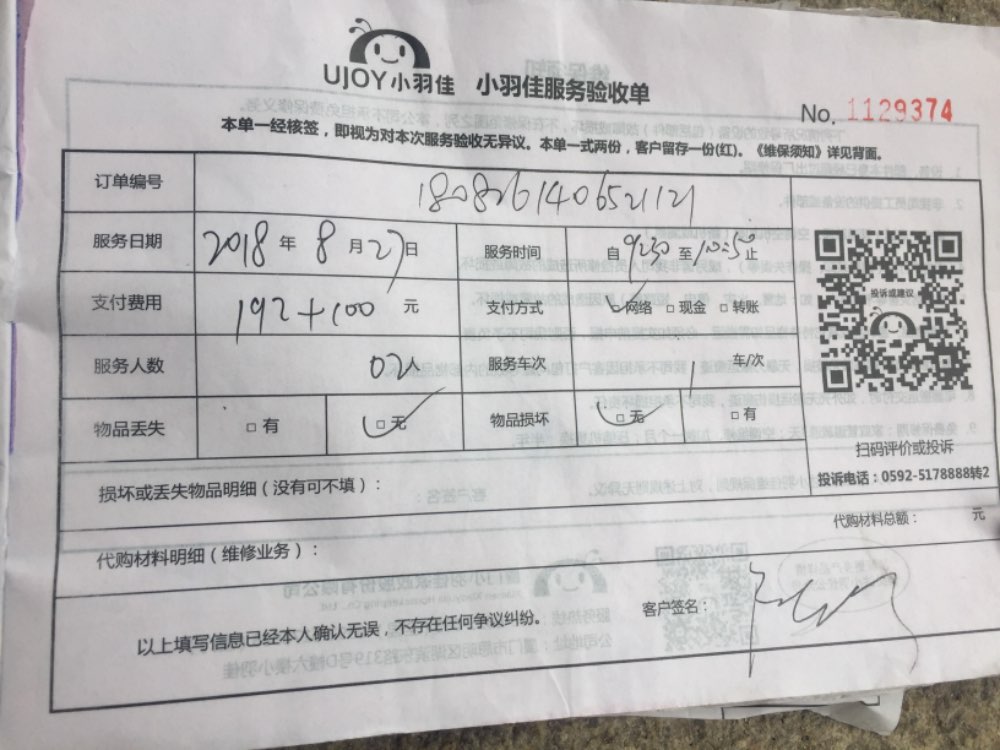 UJOY小羽佳 小羽佳服务验收单
No. 1129374
本单一经核签，即视为对本次服务验收无异议。本单一式两份，客户留存一份(红)。《维保须知》详见背面。
订单编号 1808261406521121
服务日期 2018 年 8 月 27 日 服务时间 自 9:30 至 10:50 止
支付费用 192+100 元 支付方式 □网络 □现金 □转账
服务人数 02人 服务车次 1 车/次
物品丢失 □有 □无 物品损坏 □无 □有
投诉或建议
扫码评价或投诉
投诉电话：0592-5178888转2
损坏或丢失物品明细（没有可不填）：
代购材料明细（维修业务）： 代购材料总额： 元
以上填写信息已经本人确认无误，不存在任何争议纠纷。 客户签名：